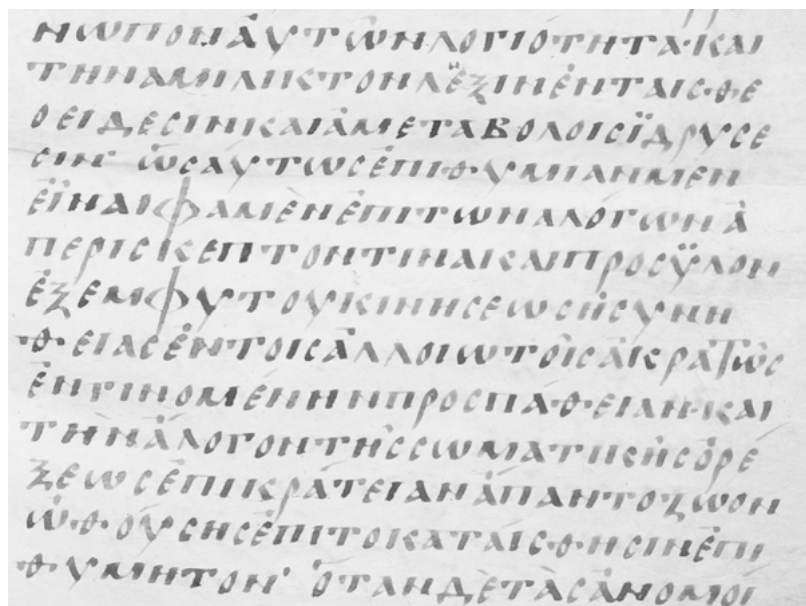 ΝΩΠΟΝ ἈΥΤΩ͂Ν ΛΟΓΙΌΤΗΤΑ· ΚΑΙ
ΤΗΝ ΑΜΙΛΙΚΤΟΝ ΛΈΞΙΝ ἘΝ ΤΑΙΣ ΘΕ
ΟΕΙΔΕΣΙΝ ΚΑΙ ἈΜΕΤΑΒΟΛΟΙΣ ΪΔΡΥΣΕ
ΣΙΝ· ὩΣΑΎΤΩΣ ἘΠΙΘΥΜΙΑΝ ΜΕΝ
ΕἾΝΑΙ ΦΑΜῈΝ ἘΠΙ ΤΩΝ ΑΛΌΓΩΝ Ἀ
ΠΕΡΙΣΚΕΠΤΟΝ ΤΙΝΑ ΚΑΙ ΠΡΟΣΫΛΟΝ
ἘΞ ΕΜΦΥΤΟΥ ΚΙΝΗΣΕΩΣ Ἠ ΣΥΝΗ
ΘΕΙΑΣ ἘΝ ΤΟΙΣ ἈΛΛΟΙΩΤΟΙ͂Σ ἈΚΡΑΤῶΣ
ἘΝΓΙΝΟΜΈΝΗΝ ΠΡΟΣΠΆΘΕΙΑΝ· ΚΑΙ
ΤΗΝ ἌΛΟΓΟΝ ΤΗ͂Σ ΣΩΜΑΤΙΚΗ͂Σ ὈΡΕ
ΞΕΩΣ ἘΠΙΚΡΆΤΕΙΑΝ ἍΠΑΝ ΤΟ ΖΩΟΝ
ὨΘΟΎΣΗΣ ἘΠΙ ΤΟ ΚΑΤΑΙΣΘΗΣΙΝ ἘΠΙ
ΘΥΜΗΤΟΝ· ὍΤΑΝ ΔΕ ΤᾺΣ ἈΝΟΜΟΙ